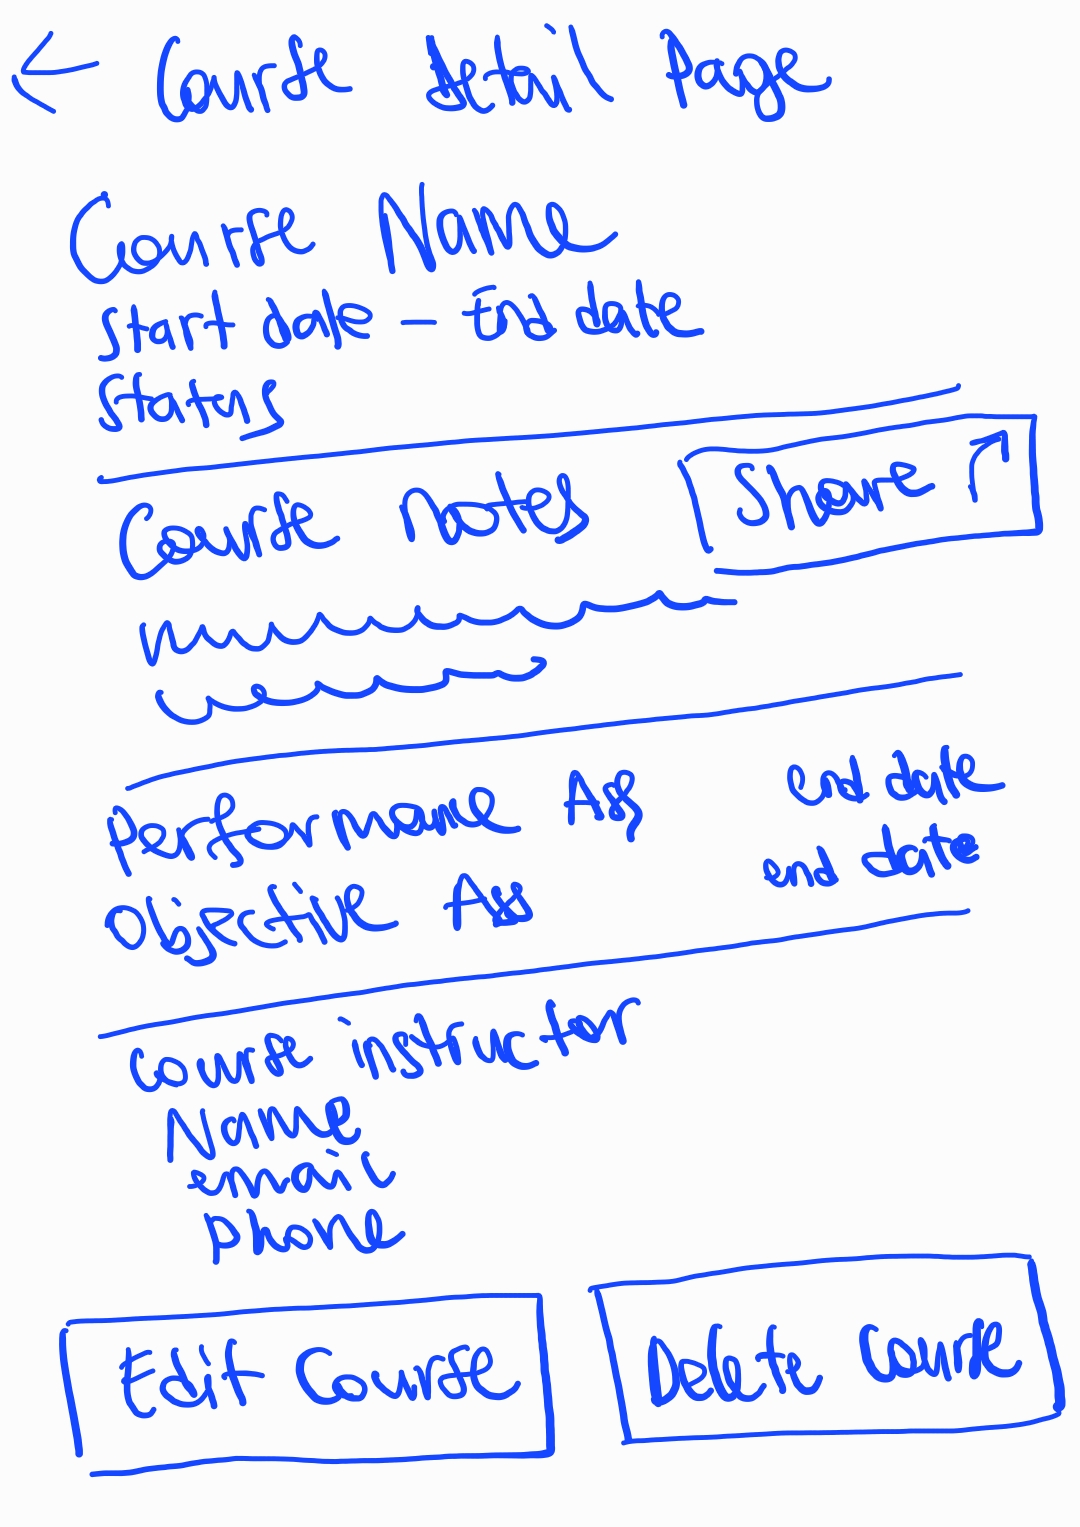 Course Detail Page
Course Name
Start date - End date
Status
Course Notes
Share
Performance Ass end date
Objective Ass end date
Course instructor
Name
email
phone
Edit Course
Delete Course